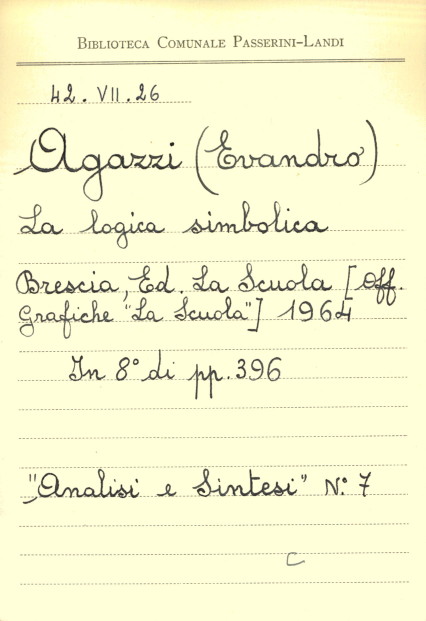 BIBLIOTECA COMUNALE PASSERINI-LANDI
42. VII. 26
Agazzi (Evandro)
La logica simbolica
Brescia, Ed. La Scuola [Off.
Grafiche "La Scuola"] 1964
In 8° di pp. 396
"Analisi e Sintesi" N.° 7
C